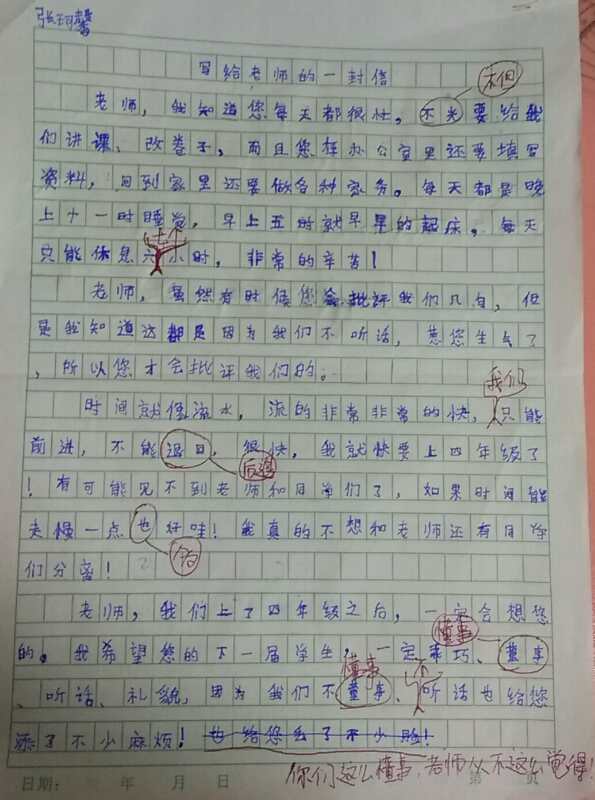 张珂馨
写给老师的一封信
不但
老师，我知道您每天都很忙，不光要给我
们讲课、改卷子，而且您在办公室里还要填写
资料，回到家里还要做各种家务。每天都是晚
上十一时睡觉，早上五时就早早的起床。每天
六个
只能休息六小时，非常的辛苦！
老师，虽然有时候您会批评我们几句，但
是我知道这都是因为我们不听话，惹您生气了
，所以您才会批评我们的。
我们
时间就像流水，流的非常非常的快，只能
前进，不能退回，很快，我就快要上四年级了
后退
！有可能见不到老师和同学们了，如果时间能
走慢一点也好哇！我真的不想和老师还有同学
们分离！
老师，我们上了四年级之后，一定会想您
懂事
的。我希望您的下一届学生，一定乖巧、董事
懂事 不
、听话、礼貌，因为我们不董事、听话也给您
添了不少麻烦！也给您丢了不少脸！
你们这么懂事，老师从不这么觉得！
日期： 年 月 日 第 页